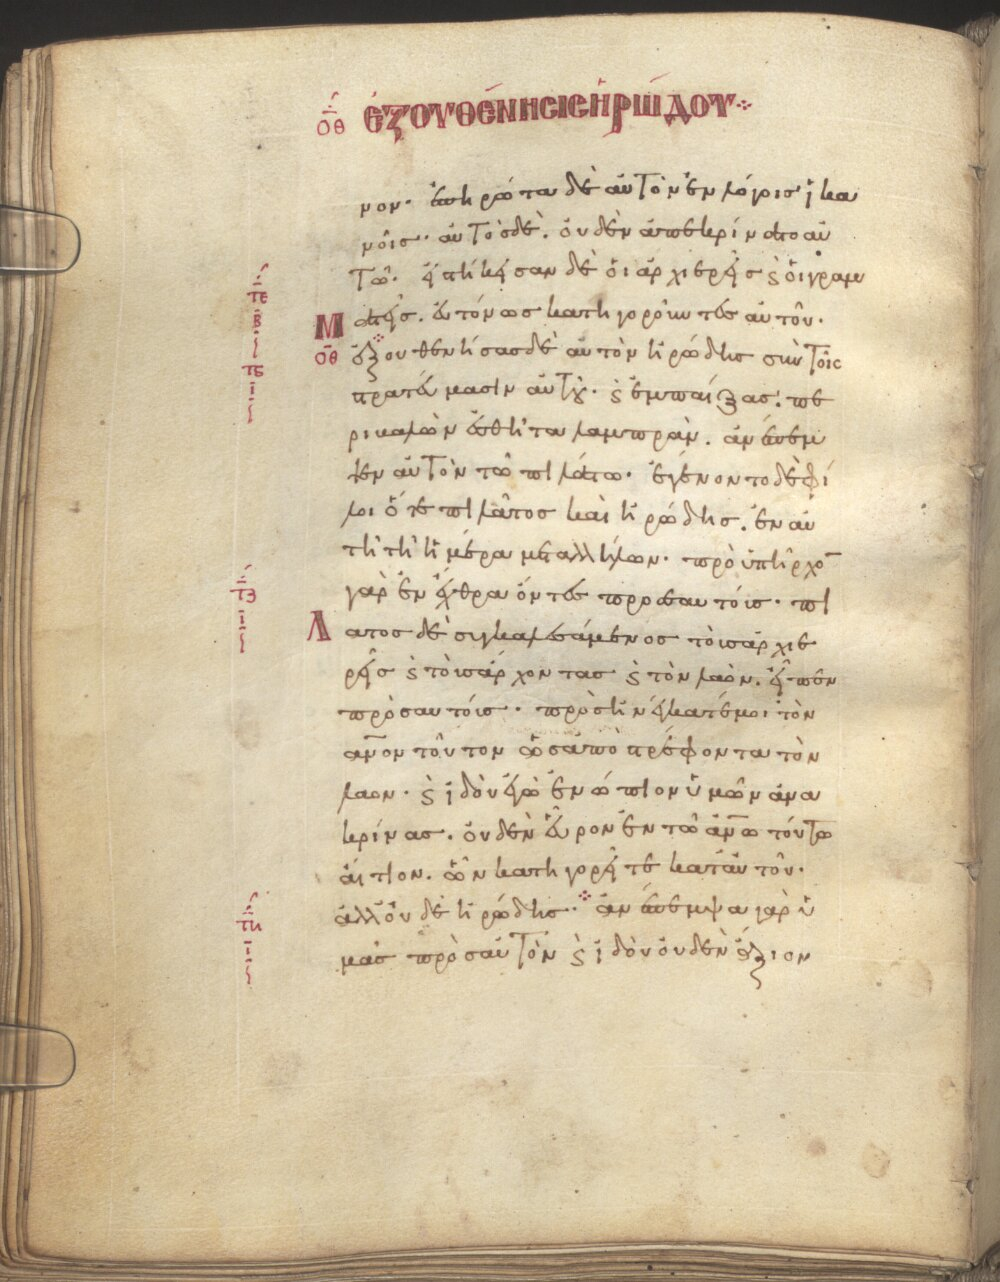 οθ ἐξουθένησιςἡρώδου
νον· ἐπηρώτα δὲ αὐτὸν ἐν λόγοις ἱκα
νοῖς· αὐτὸς δὲ. οὐδὲν ἀπεκρίνατο αὐ
τῶ· εἱστήκεισαν δὲ οἱ ἀρχιερεῖς ϛ οἱ γραμμ
ατεῖς. εὐτόνως κατηγοροῦντες αὐτοῦ·
ἐξουθενήσας δὲ αὐτὸν ἡρώδης σὺν τοῖς
στρατεύμασιν αὐτοῦ· ϛ ἐμπαίξας· πε
ριβαλὼν ἐσθῆτα λαμπρὰν. ἀνέπεμ
ψεν αὐτὸν τῶ πιλάτω· ἐγένοντο δὲ φί
λοι ὅ τε πιλᾶτος καὶ ἡρώδης. ἐν αὐ
τῆ τῆ ἡμέρα μετ ἀλλήλων· προϋπῆρχο̅
γὰρ ἐν ἔχθρα ὄντες πρὸς ἑαυτούς· πι
λάτος δὲ συγκαλεσάμενος τοὺς ἀρχιε
ρεῖς ϛ τοὺς ἄρχοντας ϛ τὸν λαὸν. εἶπεν
πρὸς αὐτούς· προσηνέγκατέ μοι τὸν
ἄν̅ον τοῦτον ὡς ἀποστρέφοντα τὸν
λαον· ϛ ἰδοὺ ἐγὼ ἐνώπιον ὑμῶν ἀνα
κρίνας. οὐδὲν εὗρον ἐν τῶ ἀν̅ω τούτω
αἴτιον. ὧν κατηγορεῖτε κατ αὐτοῦ·
ἀλλ οὐδὲ ἡρώδης· ἀνέπεμψα γὰρ ὑ
μᾶς πρὸς αὐτὸν ϛ ἰδοὺ οὐδὲν ἄξιον